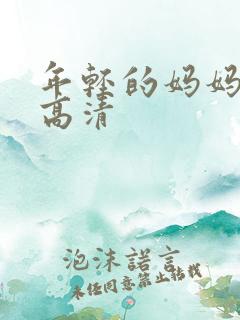 年轻的妈妈
高清
泡沫諾言
未任同意禁止转载